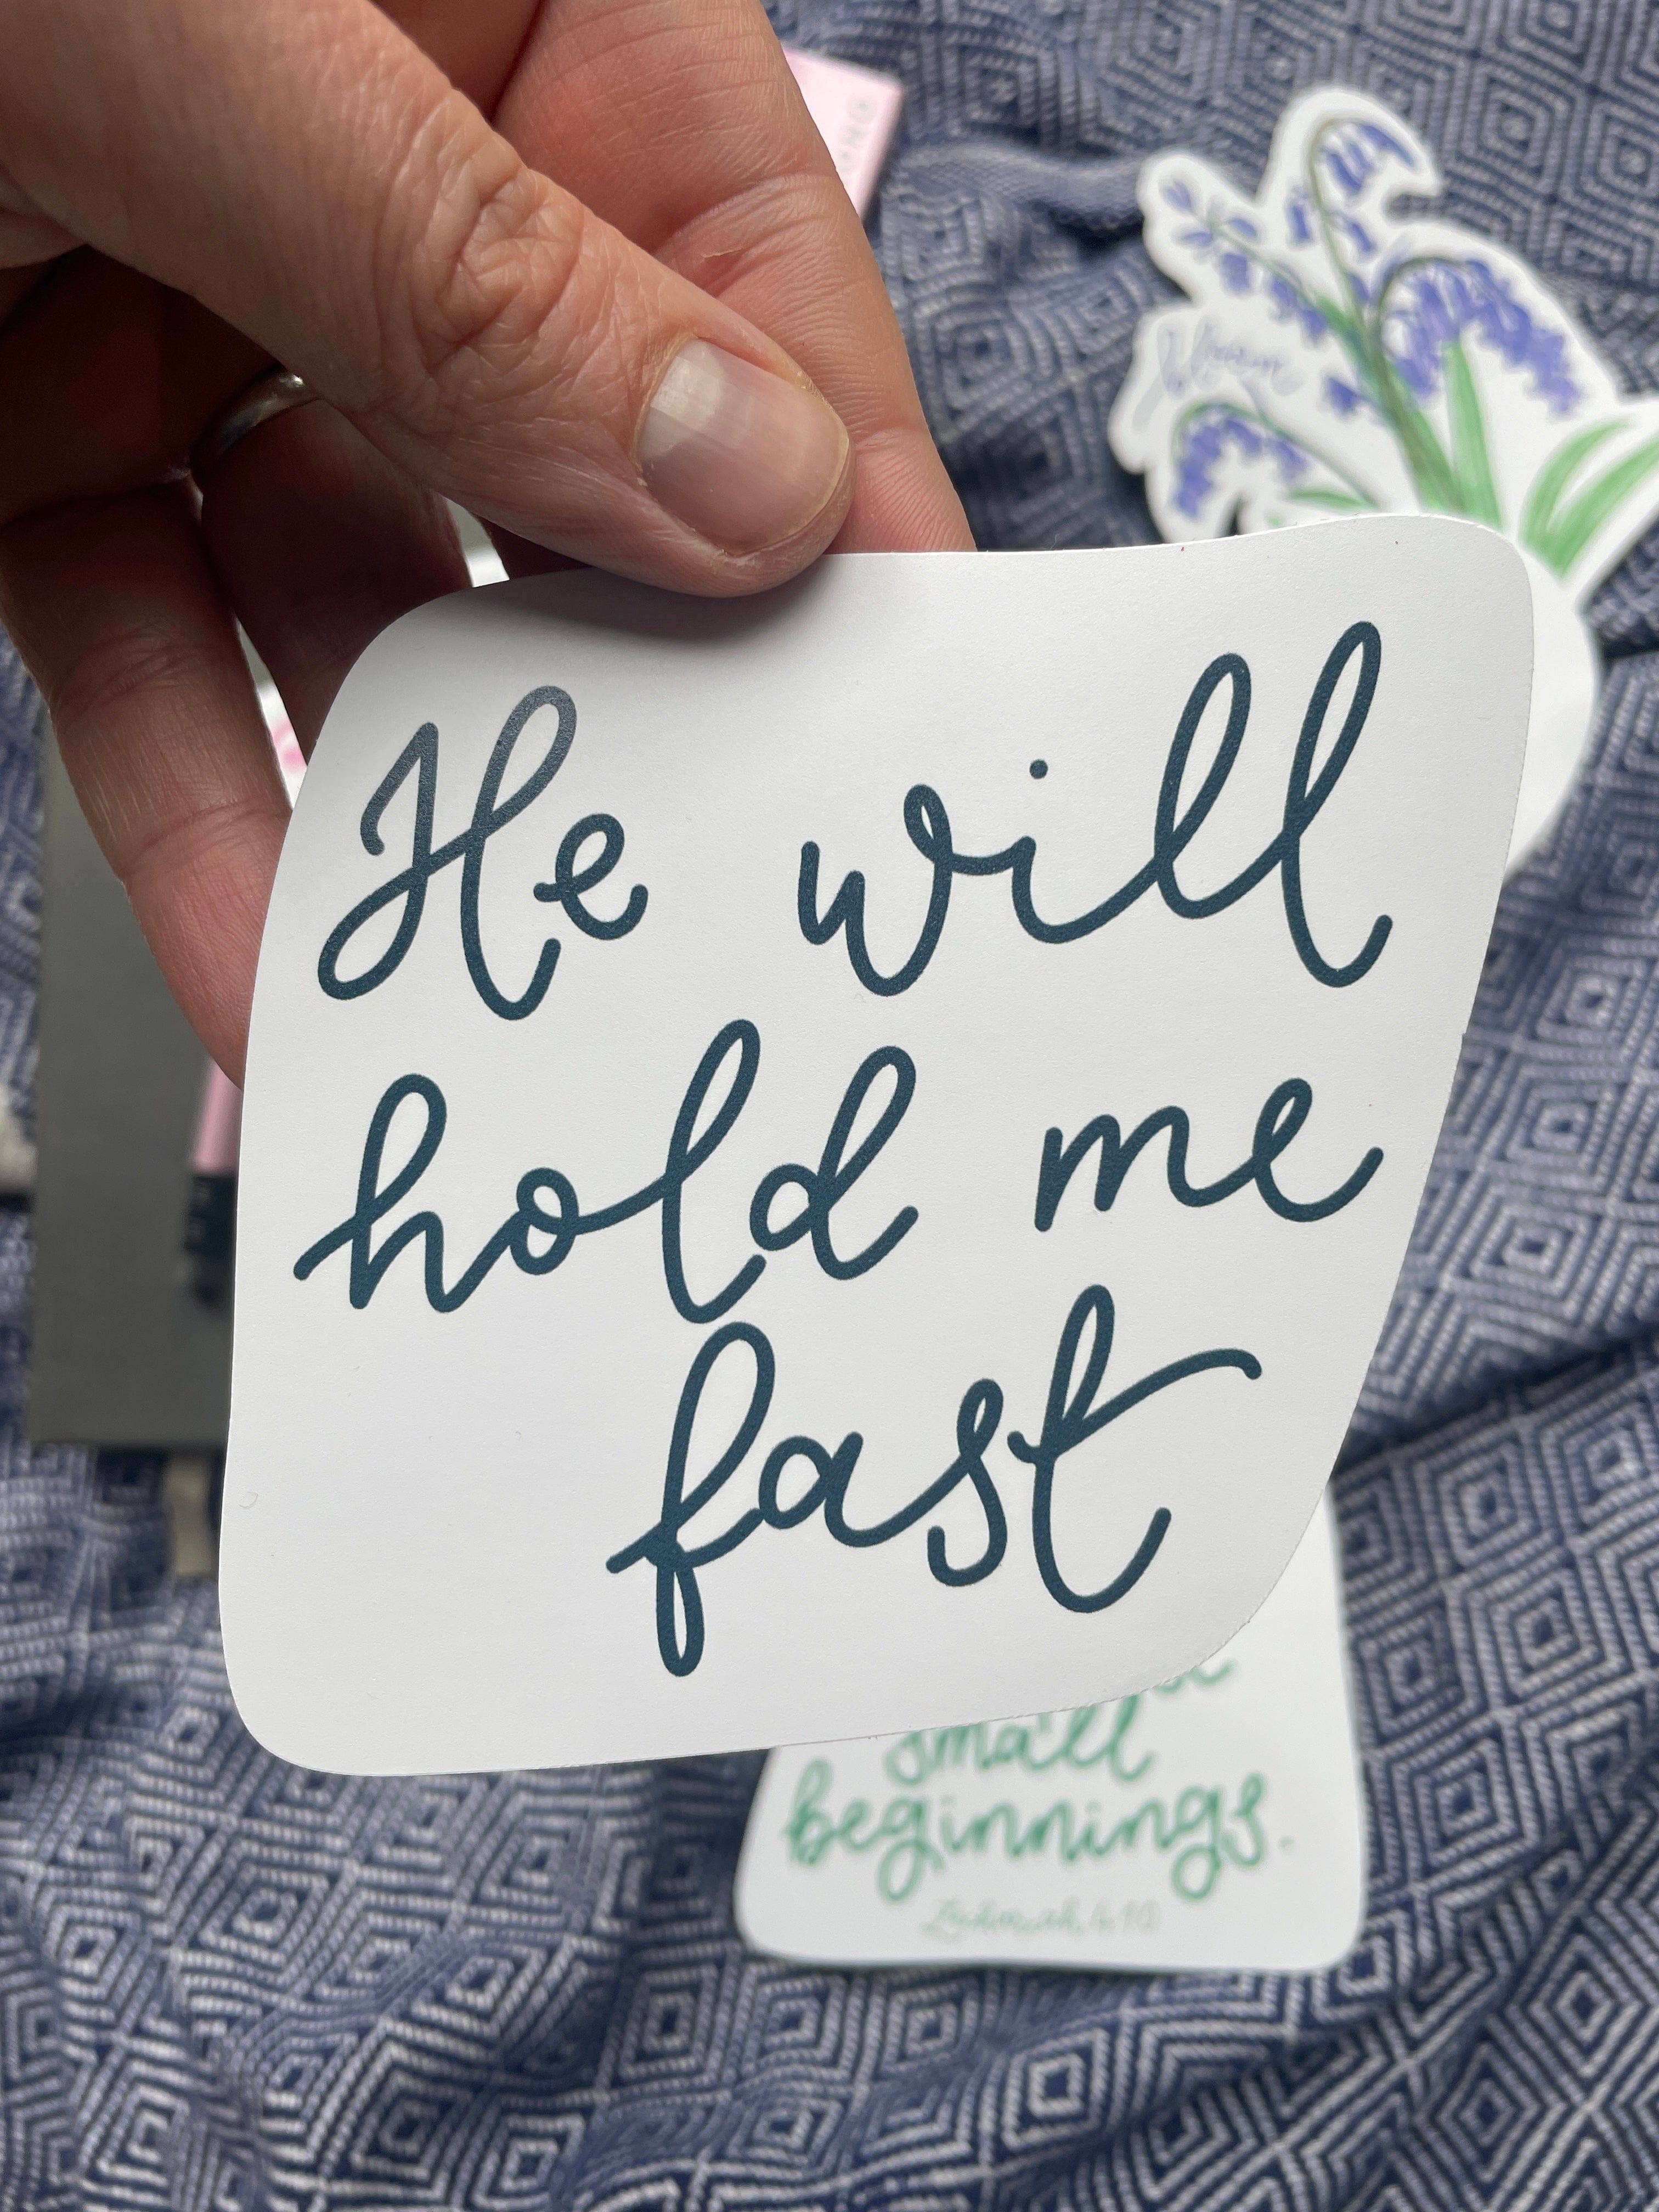 bloom
He will
hold me
fast
small
beginnings.
Zechariah 4:10